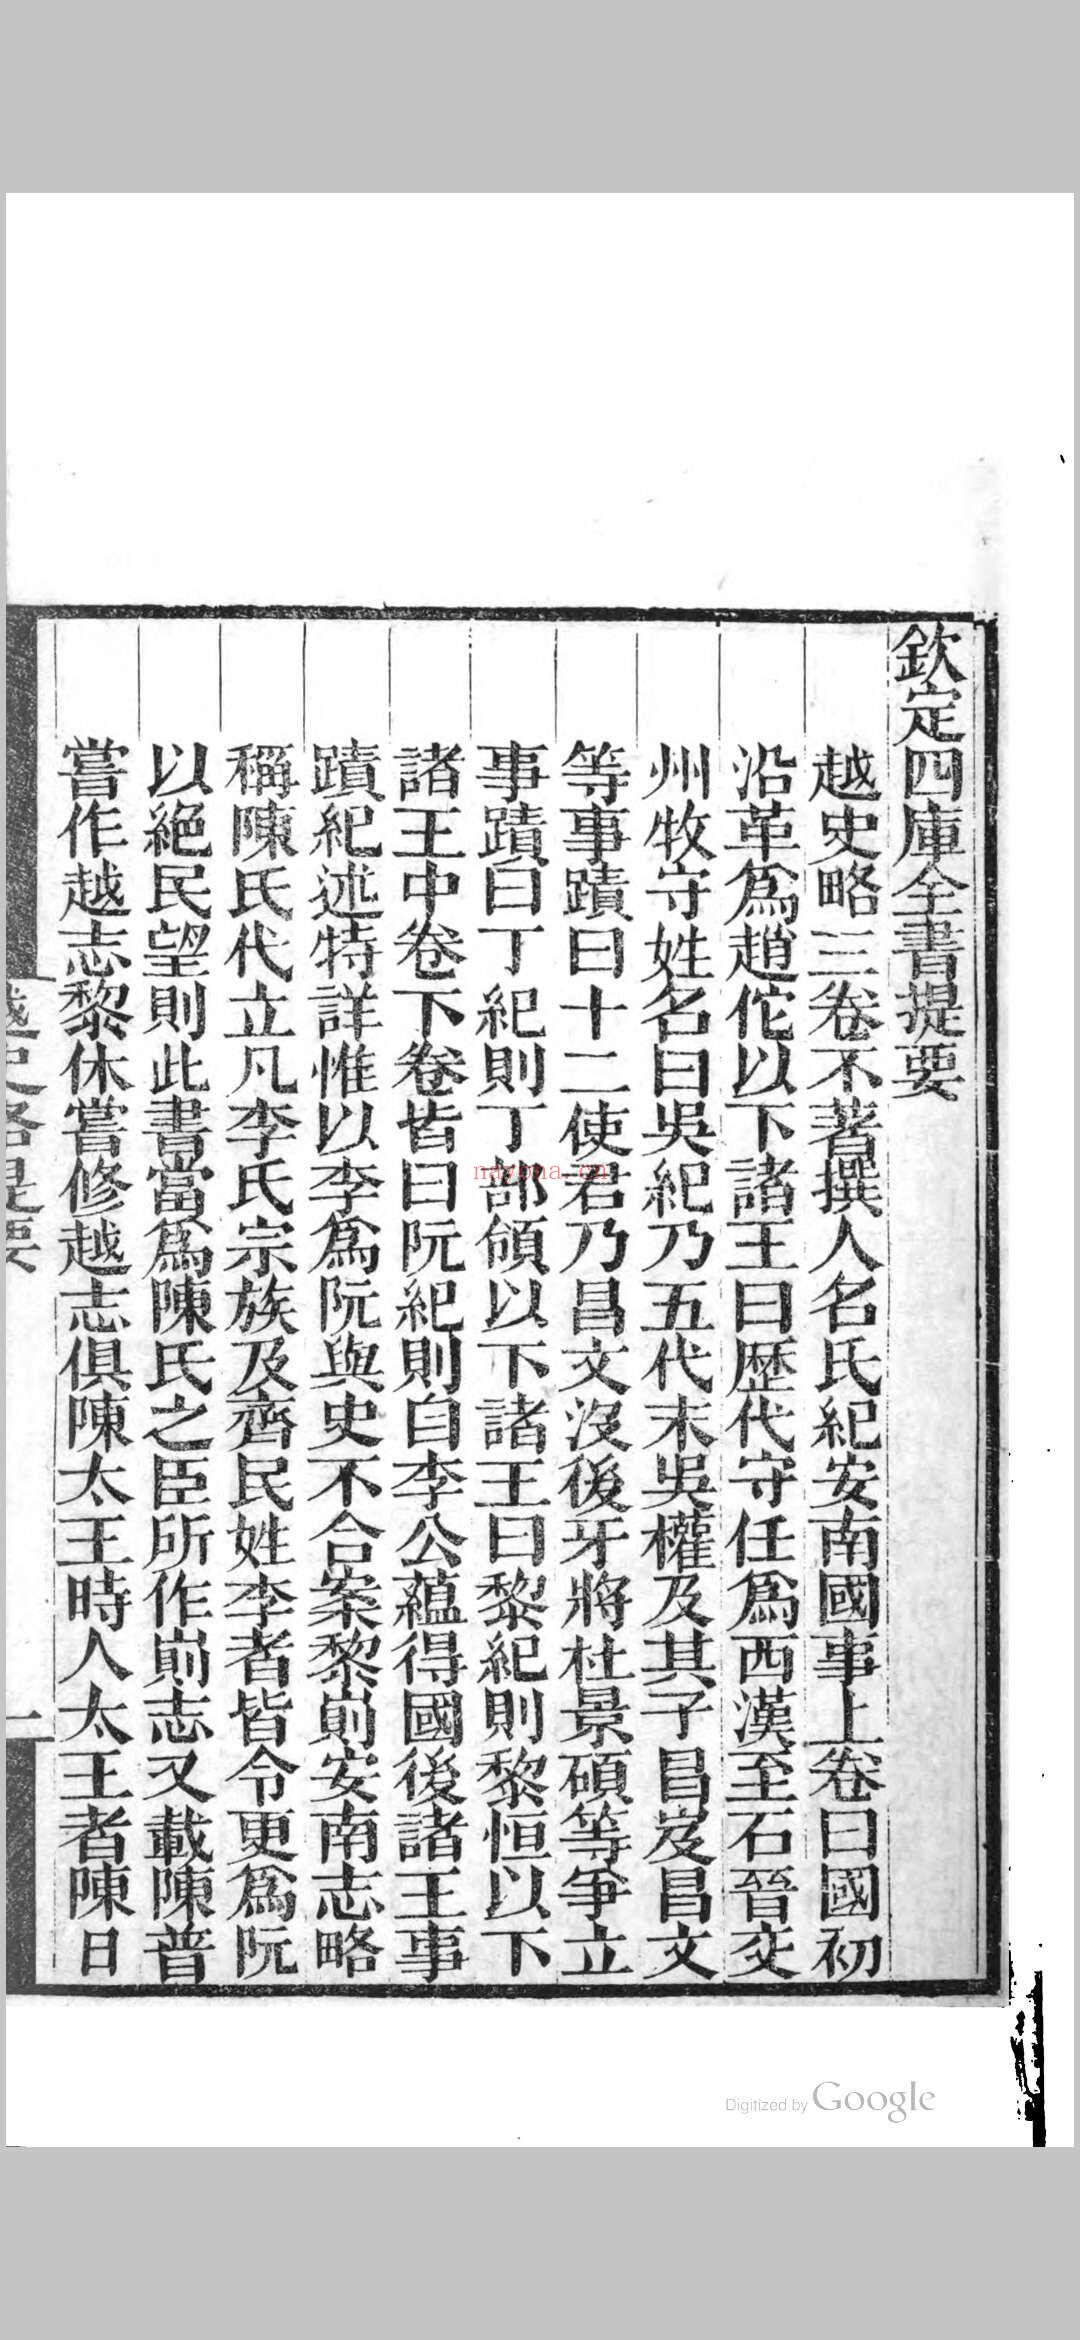 欽定四庫全書提要
越史略三卷不著撰人名氏紀安南國事上卷曰國初
沿革爲趙佗以下諸王曰歴代守任爲西漢至石晉交
州牧守姓名曰吳紀乃五代末吳權及其子昌岌昌文
等事蹟曰十二使君乃昌文沒後牙將杜景碩等爭立
事蹟曰丁紀則丁部領以下諸王曰黎紀則黎恒以下
諸王中卷下卷皆曰阮紀則自李公蘊得國後諸王事
蹟紀述特詳惟以李爲阮與史不合案黎崱安南志略
稱陳氏代立凡李氏宗族及齊民姓李者皆令更爲阮
以絕民望則此書當爲陳氏之臣所作崱志又載陳普
嘗作越志黎休嘗修越志俱陳太王時人太王者陳日
越史略提要
一
nayona.cn
Digitized by Google